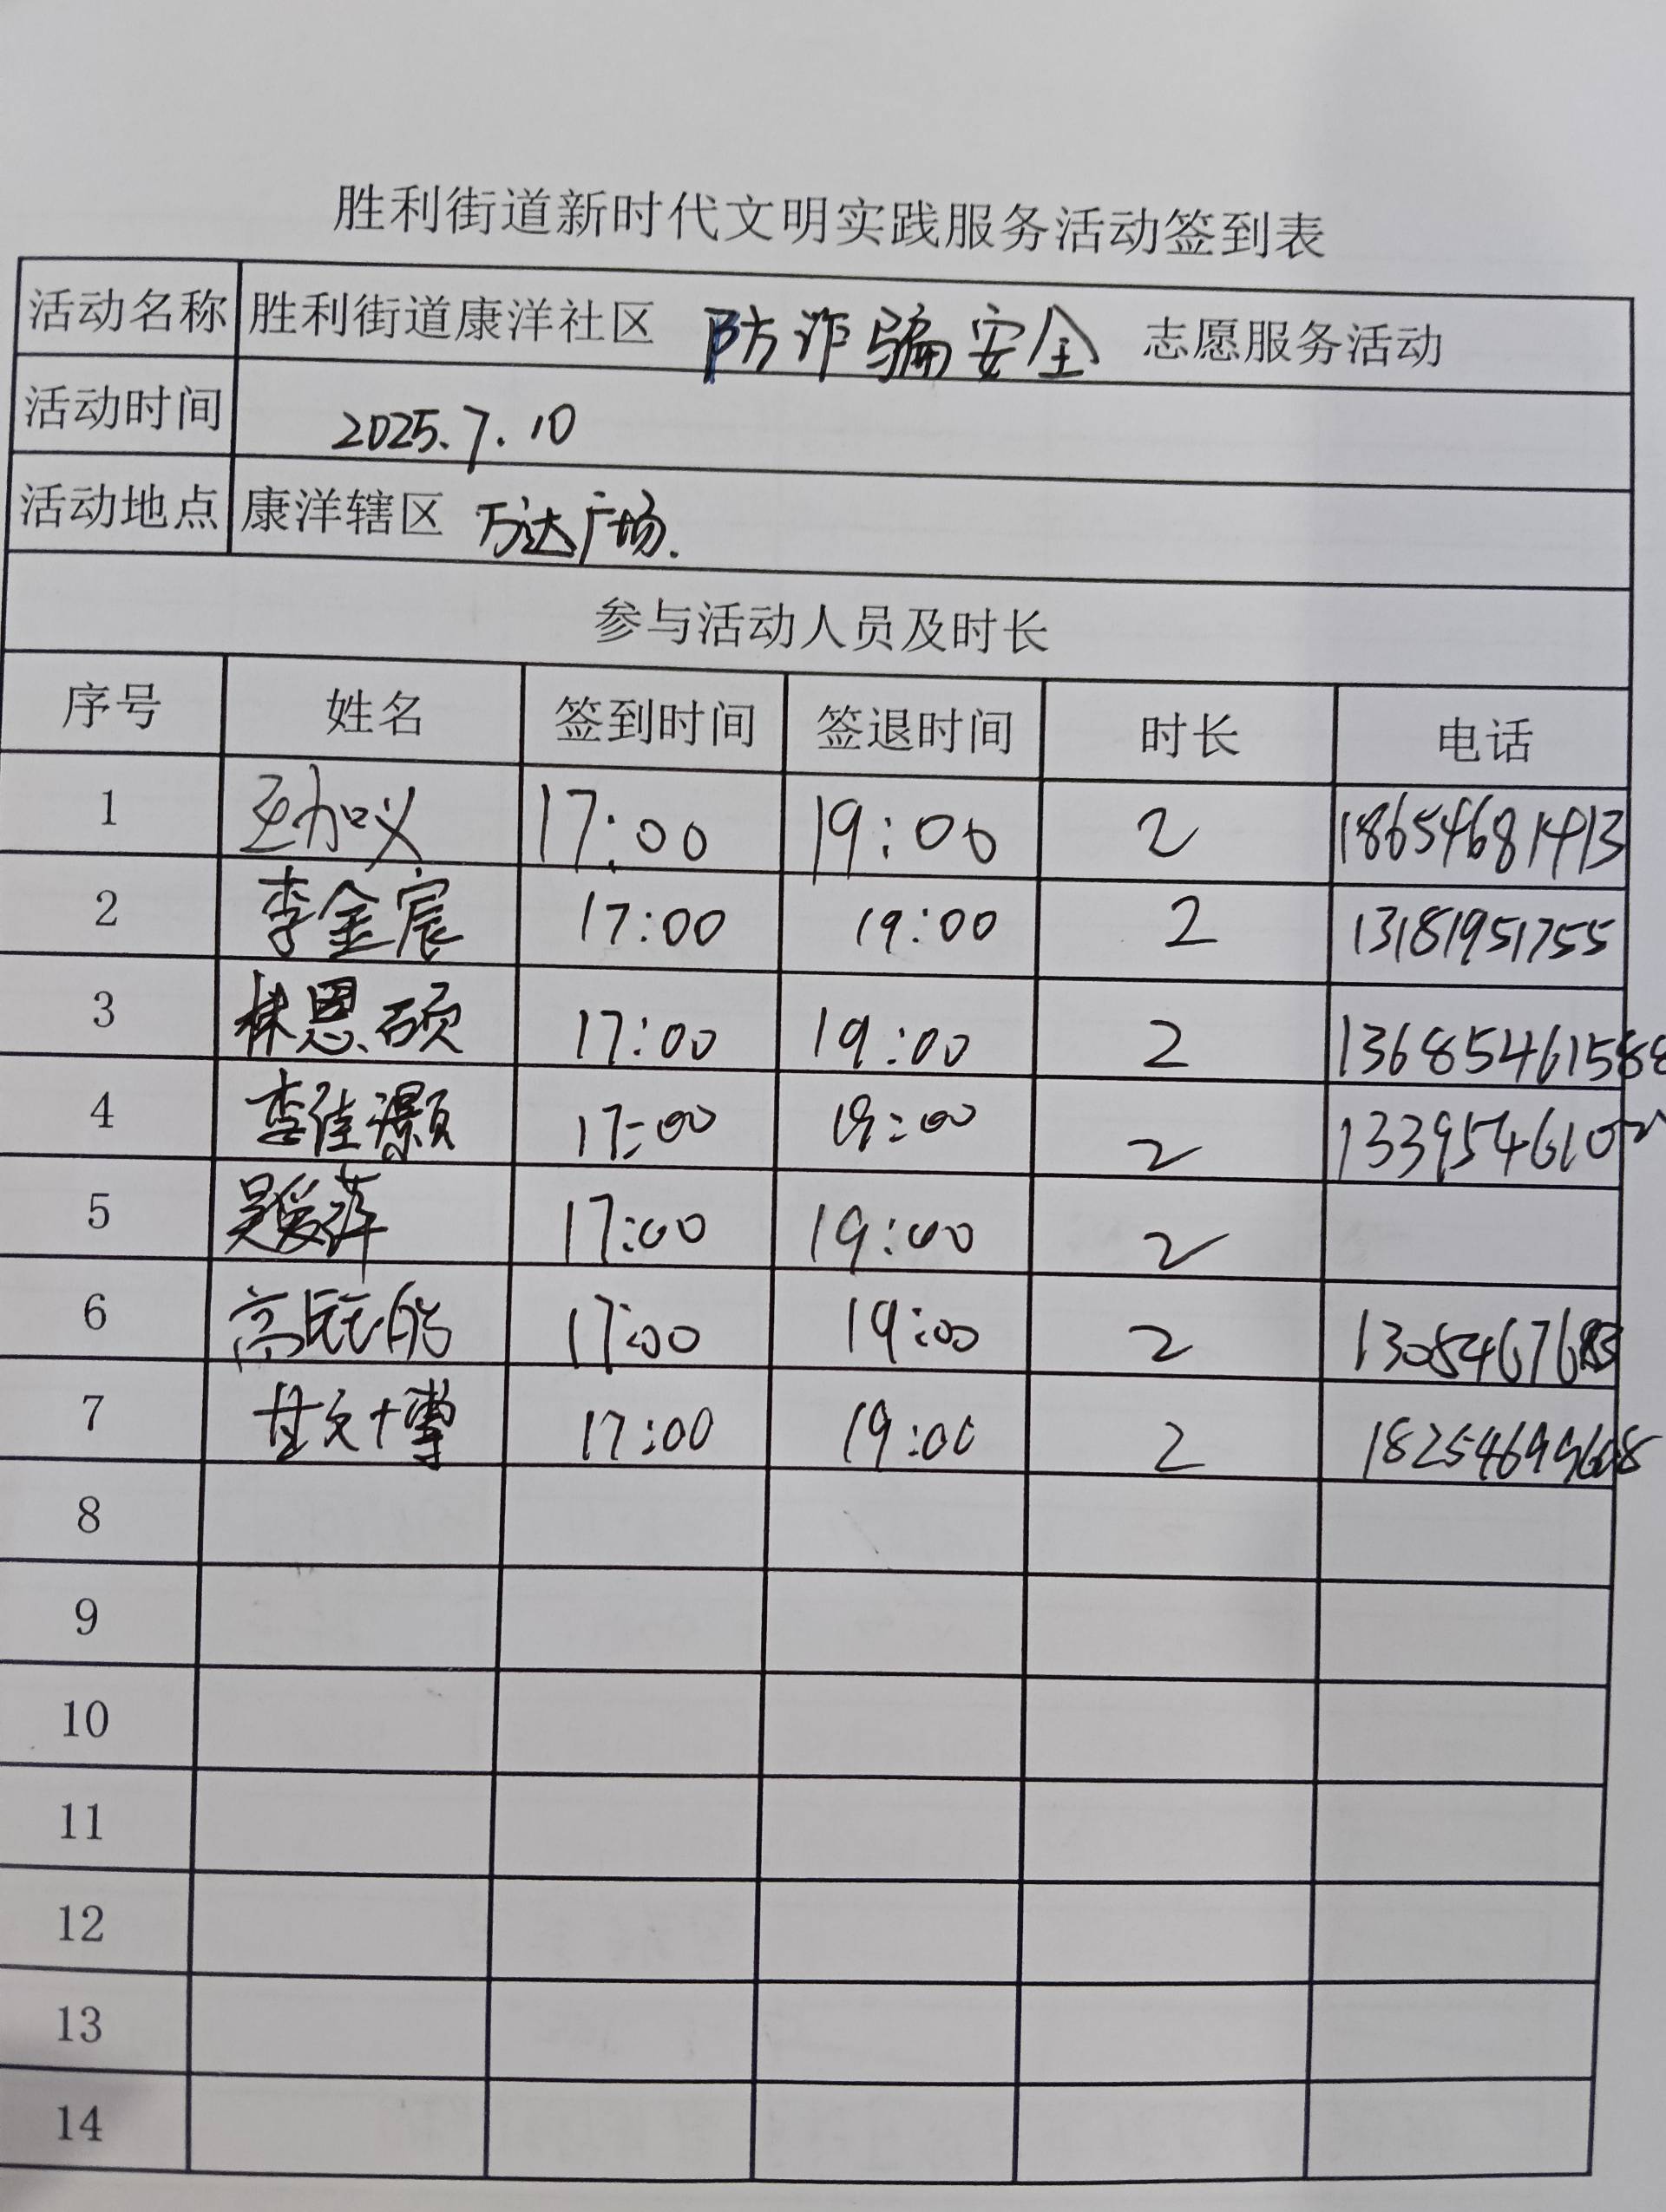 胜利街道新时代文明实践服务活动签到表
活动名称 胜利街道康洋社区 防诈骗安全 志愿服务活动
活动时间 2025.7.10
活动地点 康洋辖区 万达广场.
参与活动人员及时长
序号 姓名 签到时间 签退时间 时长 电话
1 加义 17:00 19:00 2 18654681413
2 李金宸 17:00 19:00 2 13181951755
3 林恩硕 17:00 19:00 2 13685461588
4 李佳灏 17:00 19:00 2
5 吴爱萍 17:00 19:00 2
6 高 17:00 19:00 2
7 17:00 19:00 2
8
9
10
11
12
13
14